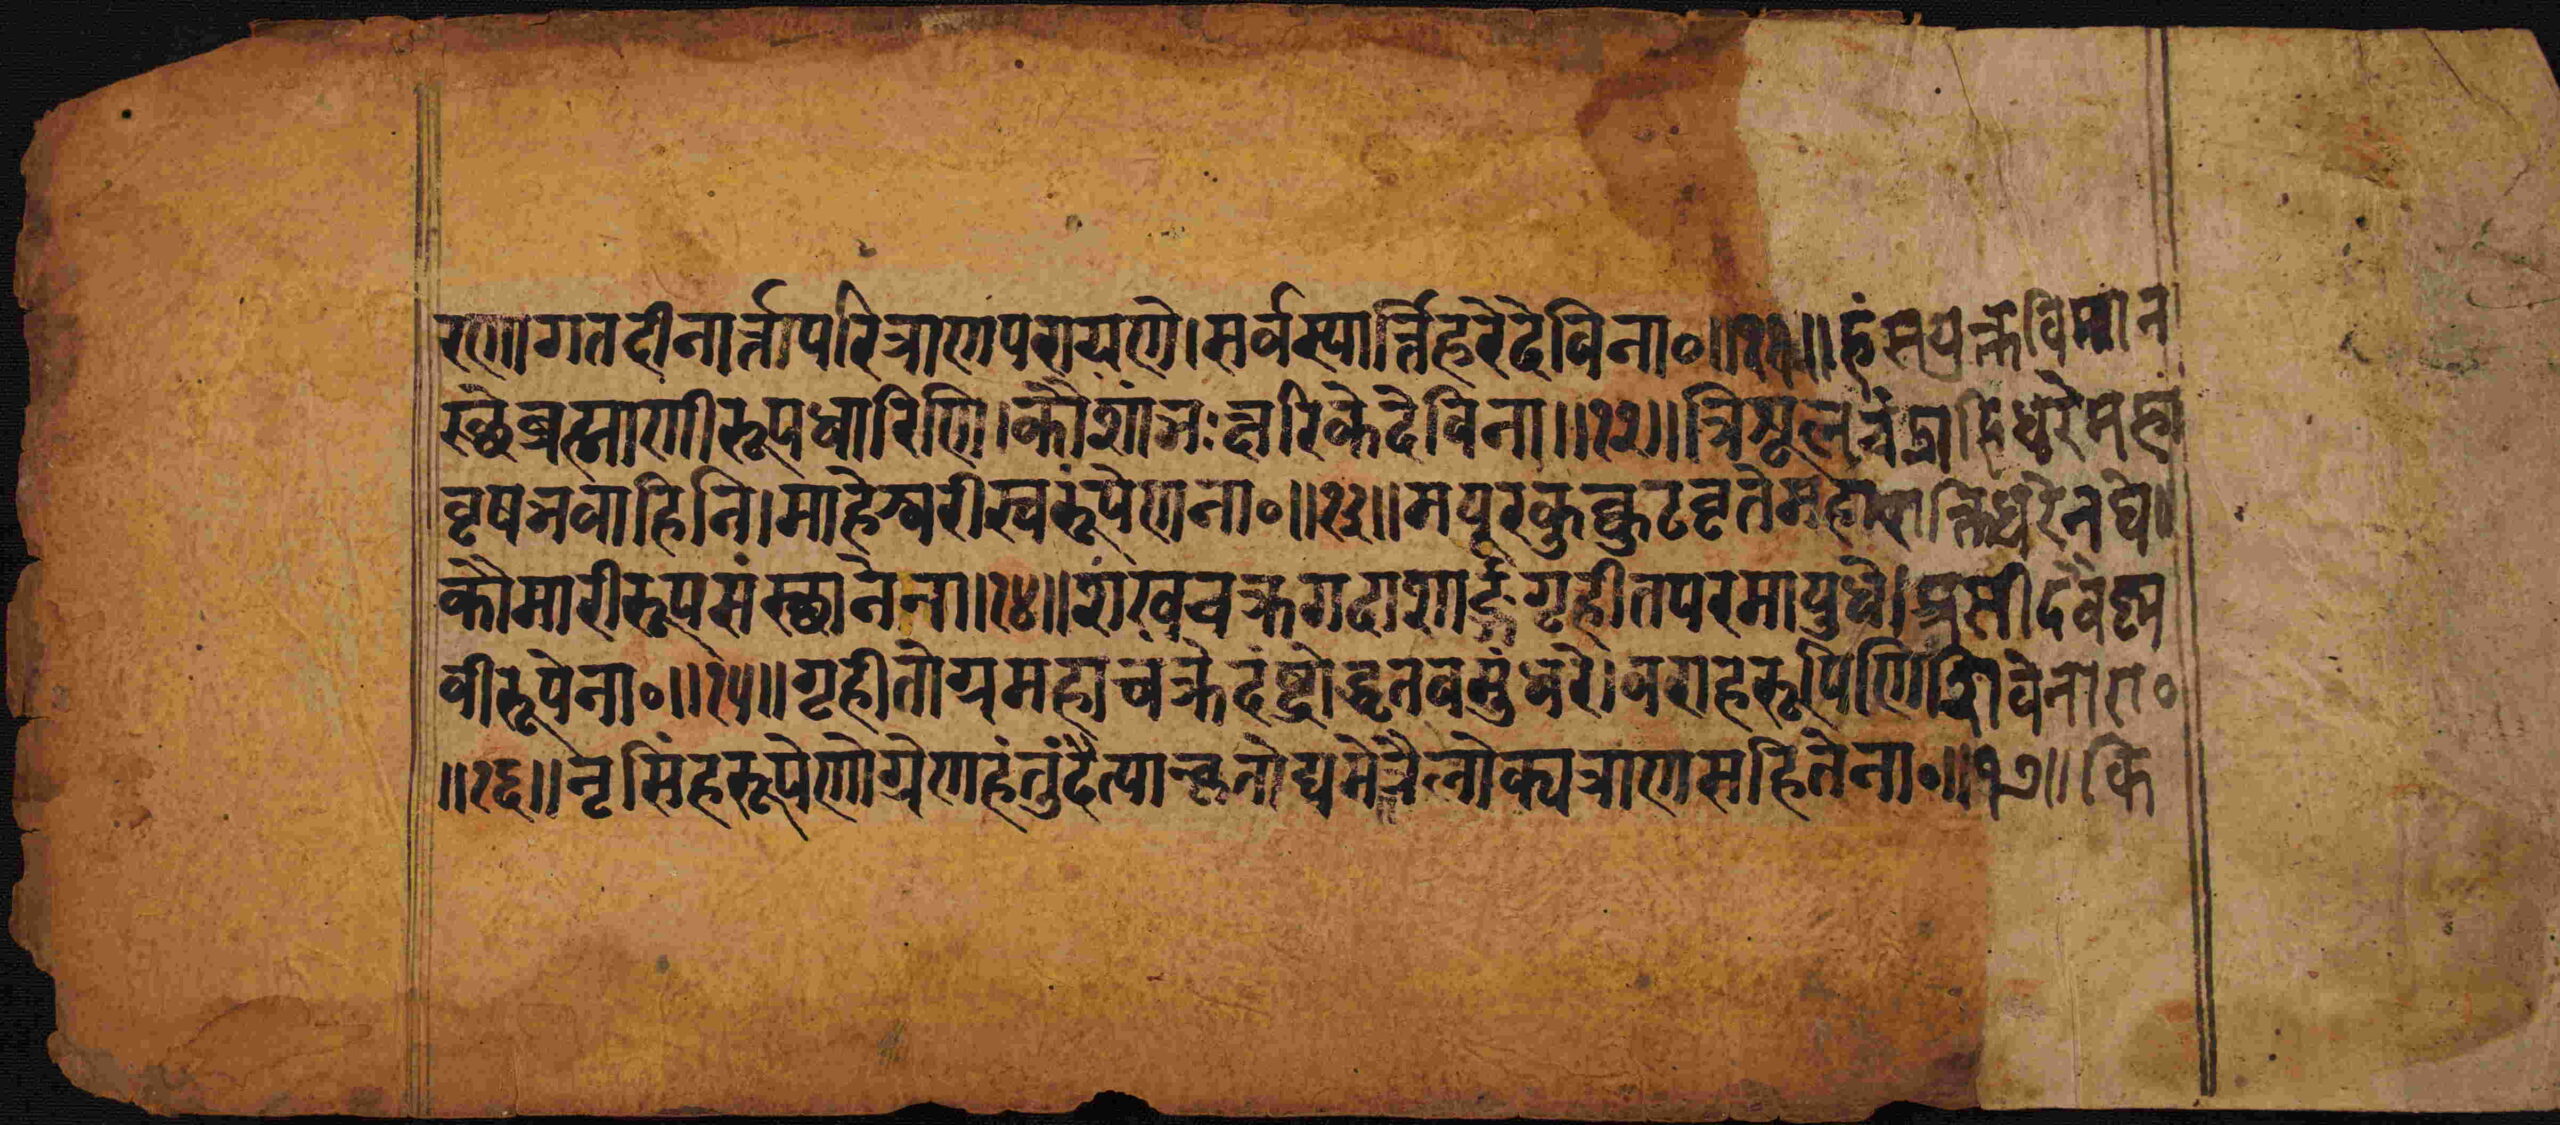 रणागतदीनार्त्तापरित्राणपरायणे।सर्वस्यार्त्तिहरेदेविना०॥११॥हंसयुक्तविमान
स्थेब्रह्माणीरूपधारिणि।कौशांभःक्षरिकेदेविना॥१२॥त्रिशूलचंद्राहिधरेमहा
वृषभवाहिनि।माहेश्वरीस्वरूपेणना०॥१३॥मयूरकुक्कुटवृतेमहाशक्तिधरेनघे॥
कौमारीरूपसंस्थानेना॥१४॥शंखचक्रगदाशार्ङ्गगृहीतपरमायुधे।प्रसीदवैष्ण
वीरूपेना०॥१५॥गृहीतोग्रमहाचक्रेदंष्ट्रोद्धृतवसुंधरे।वराहरूपिणिशिवेनारा०
॥१६॥नृसिंहरूपेणोग्रेणहंतुंदैत्यान्कृतोद्यमेत्रैलोक्यत्राणसहितेना०॥१७॥कि